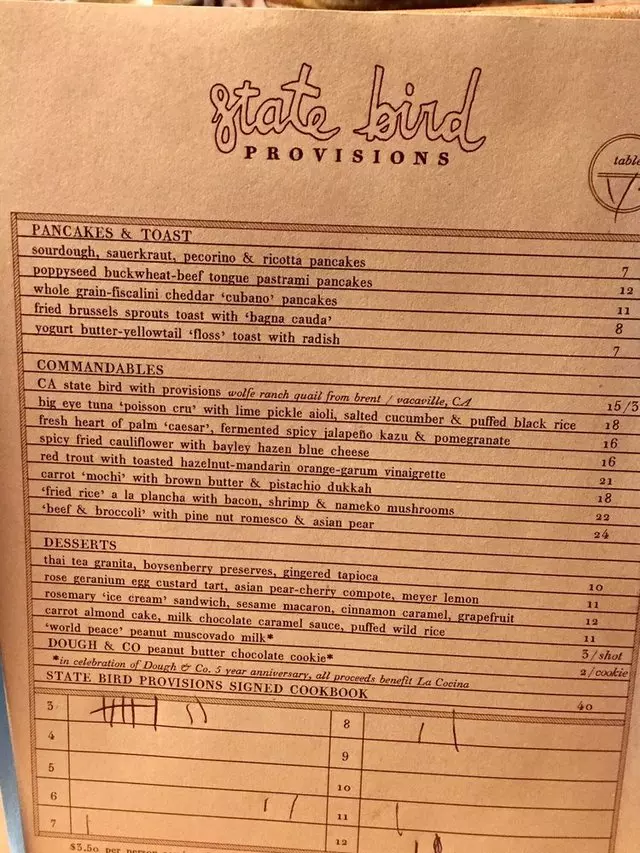 state bird
PROVISIONS
PANCAKES & TOAST
sourdough, sauerkraut, pecorino & ricotta pancakes 7
poppyseed buckwheat-beef tongue pastrami pancakes 12
whole grain-fiscalini cheddar 'cubano' pancakes 11
fried brussels sprouts toast with 'bagna cauda' 8
yogurt butter-yellowtail 'floss' toast with radish 7
COMMANDABLES
CA state bird with provisions wolfe ranch quail from brent / vacaville, CA 15/3
big eye tuna 'poisson cru' with lime pickle aioli, salted cucumber & puffed black rice 18
fresh heart of palm 'caesar', fermented spicy jalapeño kazu & pomegranate 16
spicy fried cauliflower with bayley hazen blue cheese 16
red trout with toasted hazelnut-mandarin orange-garum vinaigrette 21
carrot 'mochi' with brown butter & pistachio dukkah 18
'fried rice' a la plancha with bacon, shrimp & nameko mushrooms 22
'beef & broccoli' with pine nut romesco & asian pear 24
DESSERTS
thai tea granita, boysenberry preserves, gingered tapioca 10
rose geranium egg custard tart, asian pear-cherry compote, meyer lemon 11
rosemary 'ice cream' sandwich, sesame macaron, cinnamon caramel, grapefruit 12
carrot almond cake, milk chocolate caramel sauce, puffed wild rice 11
'world peace' peanut muscovado milk* 3/shot
DOUGH & CO peanut butter chocolate cookie* 2/cookie
*in celebration of Dough & Co. 5 year anniversary, all proceeds benefit La Cocina
STATE BIRD PROVISIONS SIGNED COOKBOOK 40
3 8
4 9
5 10
6 11
7 12
$3.50 per person